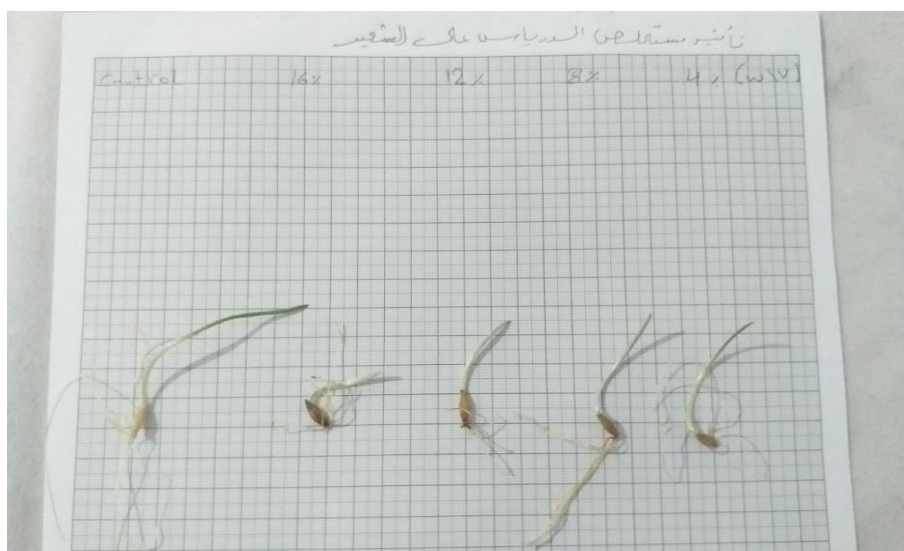 تأثير مستخلص الدرياس على الشعير
Control 16% 12% 8% 4% (w\V)